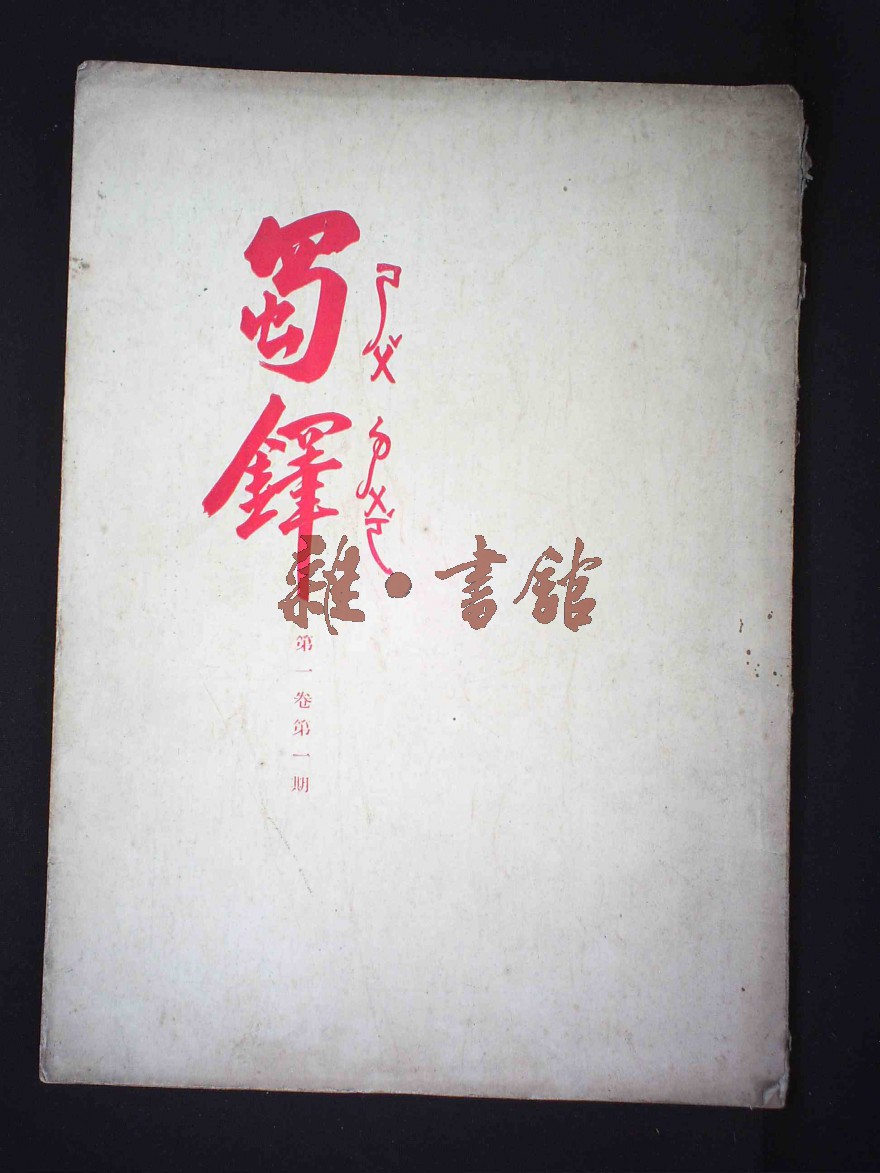 蜀鐸
ㄕㄨˇ ㄉㄨㄛˊ
第一卷第一期
雜·書館